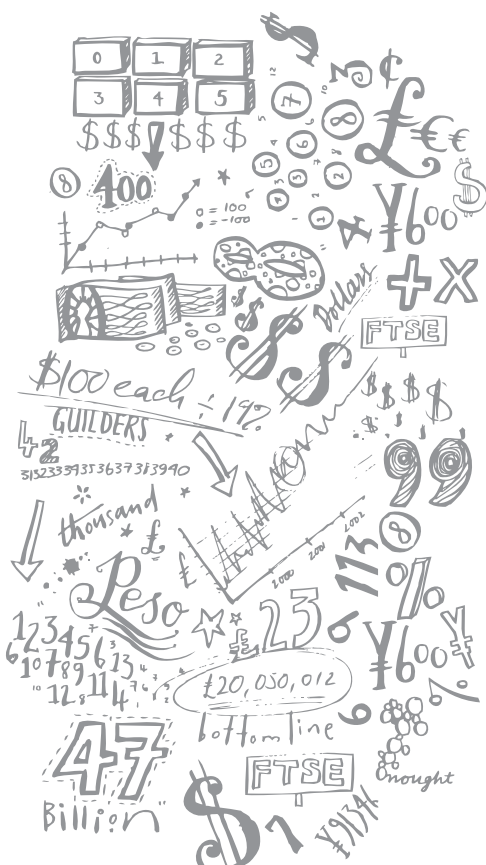 0 1 2
3 4 5
$ $ $ $ $ $
8 400
○ = 100
● = -100
$
7
8
3 ¢
£ € €
$
¥600
4
8
+ x
Dollars
FTSE
$ $
$100 each ÷ 19%
GUILDERS
42
31323334353637383940
$ $ $ $
99
thousand
£
£
2000 2001 2002
8
113
%
Peso
£23
6
¥600 ¥
1 2 3 4 5
6 7 8 9
10 11 12 13 14
£20,050,012
bottom line
9
7.
nought
47
Billion
FTSE
$
7
¥91341